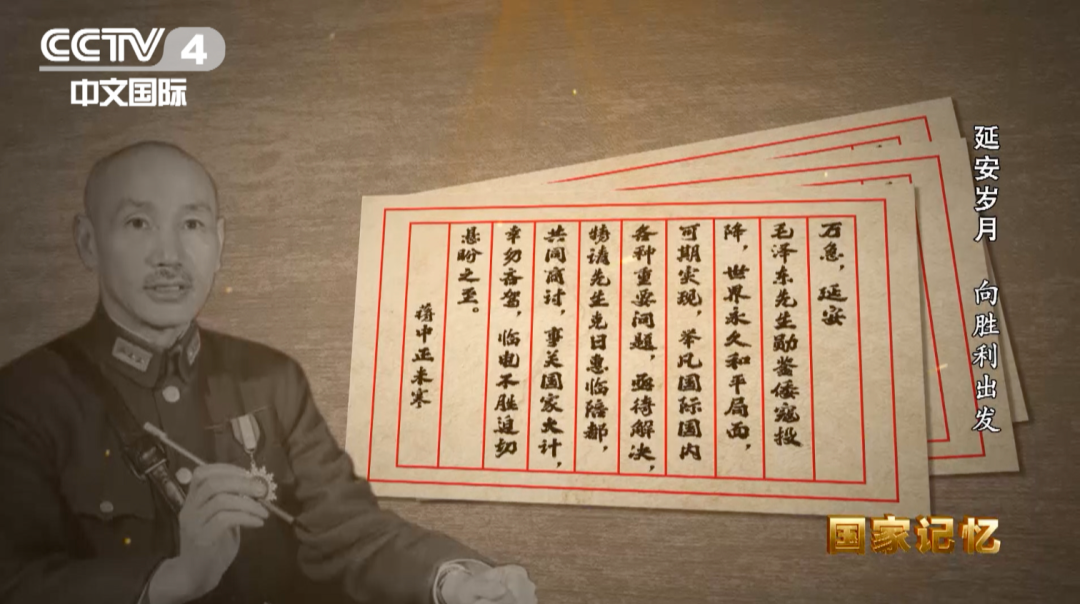 CCTV 4
中文国际
延安岁月 向胜利出发
万急，延安
毛泽东先生勋鉴倭寇投
降，世界永久和平局面，
可期实现，举凡国际国内
各种重要问题，亟待解决，
特请先生克日惠临陪都，
共同商讨，事关国家大计，
幸勿吝驾，临电不胜迫切
悬盼之至。
蒋中正未寒
国家记忆